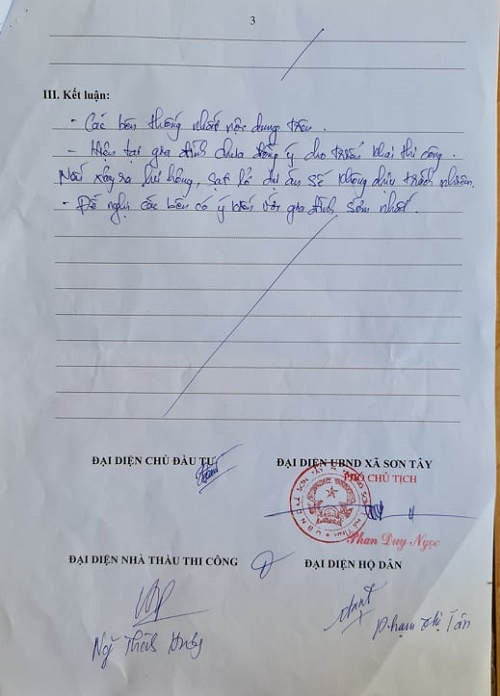 3
III. Kết luận:
- Các bên thống nhất nội dung trên.
- Hiện tại gia đình chưa đồng ý cho triển khai thi công.
Nếu xảy ra hư hỏng, sạt lở dự án sẽ không chịu trách nhiệm.
- Đề nghị các bên có ý kiến với gia đình sớm nhất.
ĐẠI DIỆN CHỦ ĐẦU TƯ
ĐẠI DIỆN UBND XÃ SƠN TÂY
PHÓ CHỦ TỊCH
Phan Duy Ngọc
ĐẠI DIỆN NHÀ THẦU THI CÔNG
ĐẠI DIỆN HỘ DÂN
Phạm Thị Tân